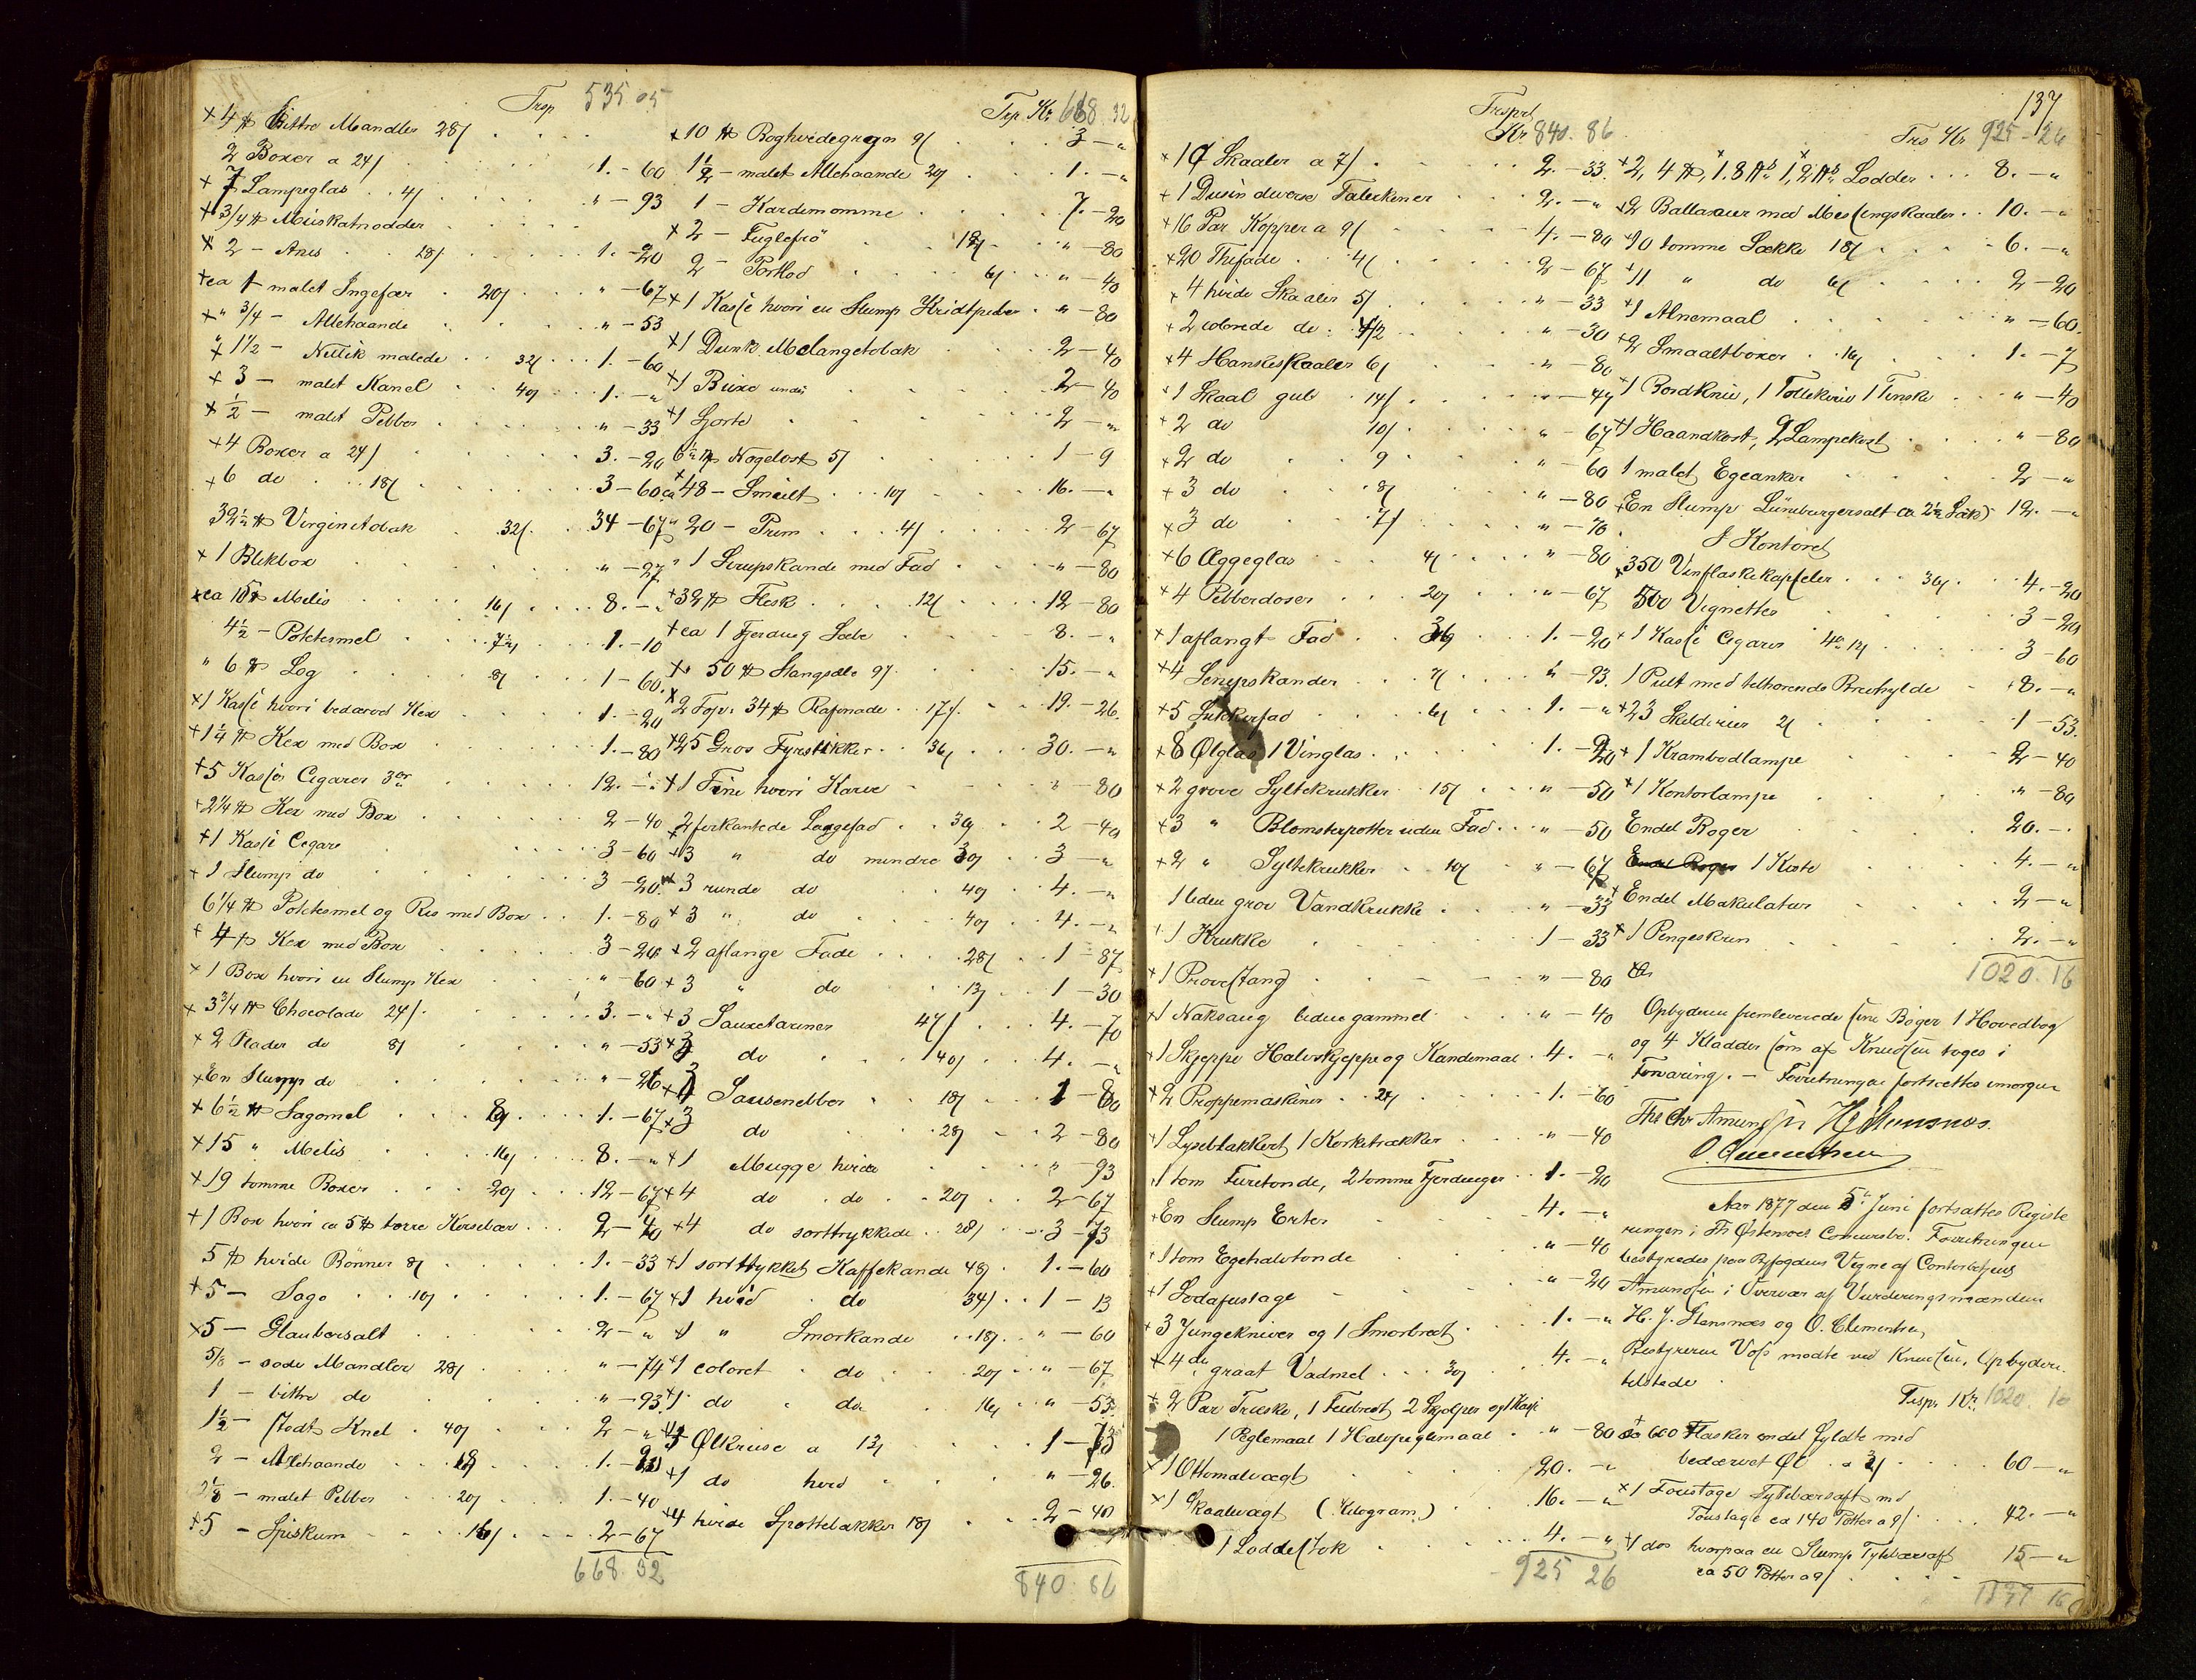 Trsp 535 05
+4 ℔ bittre Mandler 28/
2 Boxer a 24/ 1. - 60
+7 Lampeglas 4/ " - 93
+3/4 ℔ Muskatnødder
+2 - Anis 18/ 1. - 20
+ca 1 - malet Ingefær 20/ " - 67
+" 3/4 - Allehaande " - 53
+" 1 1/2 - Nellik malede 32/ 1. - 60
+3 - malet Kanel 40/ 1. - "
+1/2 - malet Pebber " - 33
+4 Boxer a 24/ 3. - 20
+6 do 18/ 3 - 60
32 1/2 ℔ Virginitobak 32/ 34 - 67
+1 Blikbox " - 27
+ca 15 ℔ Melis 16/ 8. - "
4 1/2 - Potetesmel 7 1/2/ 1. - 10
" 6 ℔ Løg 8/ 1 - 60
+1 Kasse hvori bedærvet Kex 1. - 20
+1 1/4 ℔ Kex med Box 1. - 80
+5 Kasser Cigarer 12. - "
+2 1/4 ℔ Kex med Box 2 - 40
+1 Kasse Cigare 3 - 60
+1 Slump do 3 - 20
6 1/4 ℔ Potetesmel og Ris med Box 1. - 80
+4 ℔ Kex med Box 3 - 20
+1 Box hvori en Slump Kex " - 60
+3 3/4 ℔ Chocolade 24/ 3. - "
+2 Plader do 8/ " - 53
+En Slump do " - 26
+6 1/2 ℔ Sagomel 1. - 67
+15 " Melis 16/ 8. - "
+19 tomme Boxer 20/ 12 - 67
+1 Box hvori ca 5 ℔ tørre Kirsebær 2 - 40
5 ℔ hvide Bønner 8/ 1. - 33
+5 - Sago 10/ 1. - 67
+5 - Glaubersalt 2 - "
5/8 - søde Mandler 28/ " - 74
1 - bittre do " - 93
1 1/2 - stødt Knel 40/ 2 - "
2 - Allehaande 18/ 1. - 20
- malet Pebber 20/ 1. - 40
+5 - Spiskum 16/ 2 - 67
668.32
Trp Kr 668.32
+10 ℔ Boghvedegryn 9/ 3 - "
1 1/2 - malet Allehaande 20/ 1. - "
1 - Kardemomme 7. - 20
+2 - Fuglefrö 18/ " - 80
2 - Potlod 6/ " - 40
+1 Kasse hvori en Slump Kridtpiber " - 80
+1 Dunk Melangetobak 2 - 40
+1 Buxe 2 - 40
+1 Sjorte 2 - "
6 1/2 ℔ Nøgelost 5/ 1 - 9
ca +48 - Smult 10/ 16. - "
" 20 - Prim 4/ 2 - 67
" 1 Sirupskande med Fad " - 80
+32 ℔ Flesk 12/ 12 - 80
+ca 1 Fjerding Sæbe 8. - "
+" 50 ℔ Stangsæbe 9/ 15. - "
+2 Top. 34 ℔ Rafinade 17/ 19. - 26
+25 Gros Fyrstikker 36/ 30. - "
+1 Tine hvori Karve " - 80
+2 firkantede Laagefad 30/ 2 - 40
+3 " do mindre 30/ 3 - "
+3 runde do 40/ 4. - "
+3 " do 40/ 4. - "
+2 aflange Fade 28/ 1 - 87
+3 " do 13/ 1 - 30
+3 Sausetariner 47/ 4. - 70
+3 do 40/ 4. - "
+3 Sausenebber 18/ 1 - 80
+3 do 28/ 2 - 80
+1 Mugge hvide " - 93
+4 do do 20/ 2 - 67
+4 do sorttrykkede 28/ 3 - 73
+1 sorttrykket Kaffekande 48/ 1. - 60
+1 hvid do 34/ 1 - 13
+1 " Smørkande 18/ " - 60
+1 coloret do 20/ " - 67
+1 do do 16/ " - 53
+3 Ølkruse a 13/ 1 - 73
+1 do hvid " - 26
+4 hvide Spøttebakker 18/ 2 - 40
840.86
137
Trspt
Kr 840.86
+10 Skaaler a 7/ 2. - 33
+1 Dusin diverse Talerkener 2. - "
+16 Par Kopper a 9/ 4. - 80
+20 Thefade 4/ 2 - 67
+4 hvide Skaaler 5/ " - 33
+2 colorede do " - 30
+4 Hankeskaaler 6/ " - 80
+1 Skaal gul 14/ " - 47
+2 do 10/ " - 67
+2 do 9 " - 60
+3 do 8/ " - 80
+3 do 7/ " - 70
+6 Æggeglas 4/ " - 80
+4 Pebberdoser 20/ " - 67
+1 aflangt Fad 36/ 1. - 20
+4 Sirupskander 7/ " - 93
+5 Sukkerfad 6/ 1. - "
+8 Ølglas 1 Vinglas 1. - 20
+2 grove Syltekrukker 15/ " - 50
+3 " Blomsterpotter uden Fad " - 50
+2 " Syltekrukker 10/ " - 67
1 liden grov Vandkrukke " - 33
+1 Krukke 1 - 33
+1 Prøvestang " - 80
+1 Naksaug liden gammel " - 40
+1 Skjeppe Halvskjeppe og Kandemaal 4. - "
+2 Proppemaskiner 24/ 1. - 60
+1 Lysebakket, 1 Korketrækker " - 40
1 tom Furetønde, 2 tomme Fjerdinger 1. - 20
+En Slump Erter 4. - "
+1 tom Egehalvtønde " - 40
+1 Sodafustage " - 20
+3 Jungekniver og 1 Smørbret 1. - "
+4 graat Vadmel 30/ 4. - "
+2 Par Træske, 1 Feibret 2 Skjolper og 1 Kasse
1 Peglemaal 1 Halvpeglemaal " - 80
+1 Ottomalvægt 20. - "
+1 Skaalvægt (Kilogram) 16. - "
1 Loddestok 4. - "
925 26
Trs Kr 925 - 26
+2, 4 ℔, 1. 8 ℔ 1, 2 ℔ Lodder 8. - "
+2 Ballancer med Messingskaaler 10. - "
+10 tomme Sække 18/ 6. - "
+11 " do 6/ 2 - 20
+1 Alnemaal " - 60
+2 Smaaltboxer 16/ 1. - 7
+1 Bordkniv, 1 Tollekniv 1 Tinske " - 40
+1 Haandkost, 2 Lampekost " - 80
1 malet Egeanker 2 - "
+En Slump Lüneburgersalt ca 2 1/2 Sæk 12. - "
I Kontoret
+350 Vinflaskekapseler 36/ 4. - 20
500 Vignetter 3 - 20
+1 Kasse Cigarer 3 - 60
1 Pult med tilhørende Brevhylde 8. - "
+23 Skilderier 2/ 1 - 53
+1 Krambodlampe 2 - 40
+1 Kontorlampe " - 80
Endel Bøger 20. - "
1 Kiste 4. - "
+Endel Makulatur 2 - "
+1 Pengeskrin 2. - "
1020.16
Opbyderen fremleverede sine Bøger 1 Hovedbog
og 4 Kladder som af Knudsen toges i
Forvaring. - Forretningen fortsættes imorgen
Ths Chr Amundsen H J Stensnæs
O. Clementsen
Aar 1877 den 5te Juni fortsattes Registe
ringen i Th Østensøes Concursbo. Forretningen
bestyredes paa Byfogdens Vegne af Contorbetjent
Amundsen i Overvær af Vurderingsmændene
H. J. Stensnæs og O. Clementsen
Bestyreren Voss mødte ved Knudsen, Opbyderen
tilstede.
Trspr Kr 1020.16
+ca 600 Flasker endel fyldte med
bedærvet Øl a 3/ 60 - "
+1 Foustage Tytebærsaft med
Foustage ca 140 Potter a 9/ 42. - "
+1 dos hvorpaa en Slump Tytebærsaft
ca 50 Potter a 9/ 15 - "
1137 16